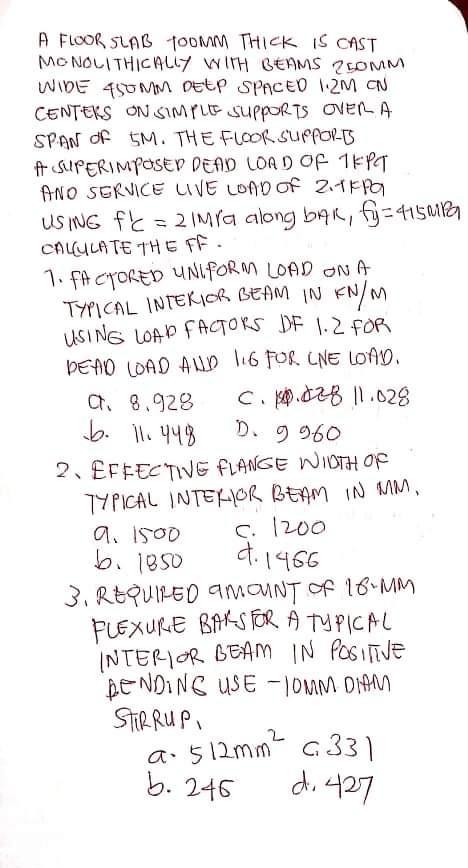 A FLOOR SLAB 100MM THICK IS CAST
MONOLITHICALLY WITH BEAMS 250MM
WIDE 450MM DEEP SPACED 1.2M ON
CENTERS ON SIMPLE SUPPORTS OVER A
SPAN OF 5M. THE FLOOR SUPPORTS
A SUPERIMPOSED DEAD LOAD OF 1KPa
AND SERVICE LIVE LOAD OF 2.1KPa
USING f'c = 21MPa along bAR, fy=415MPa
CALCULATE THE FF.
1. FACTORED UNIFORM LOAD ON A
TYPICAL INTERIOR BEAM IN KN/M
USING LOAD FACTORS OF 1.2 FOR
DEAD LOAD AND 1.6 FOR LIVE LOAD.
a. 8.928 C. 11.028
b. 11.448 D. 9 960
2. EFFECTIVE FLANGE WIDTH OF
TYPICAL INTERIOR BEAM IN MM.
a. 1500 C. 1200
b. 1850 d. 1466
3. REQUIRED AMOUNT OF 16-MM
FLEXURE BARS FOR A TYPICAL
INTERIOR BEAM IN POSITIVE
BENDING USE -10MM DIAM
STIRRUP.
a. 512mm² C. 331
b. 246 d. 427